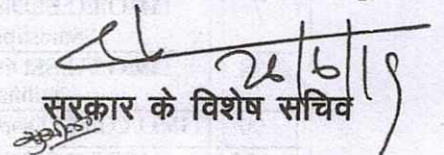 26/6/19
सरकार के विशेष सचिव